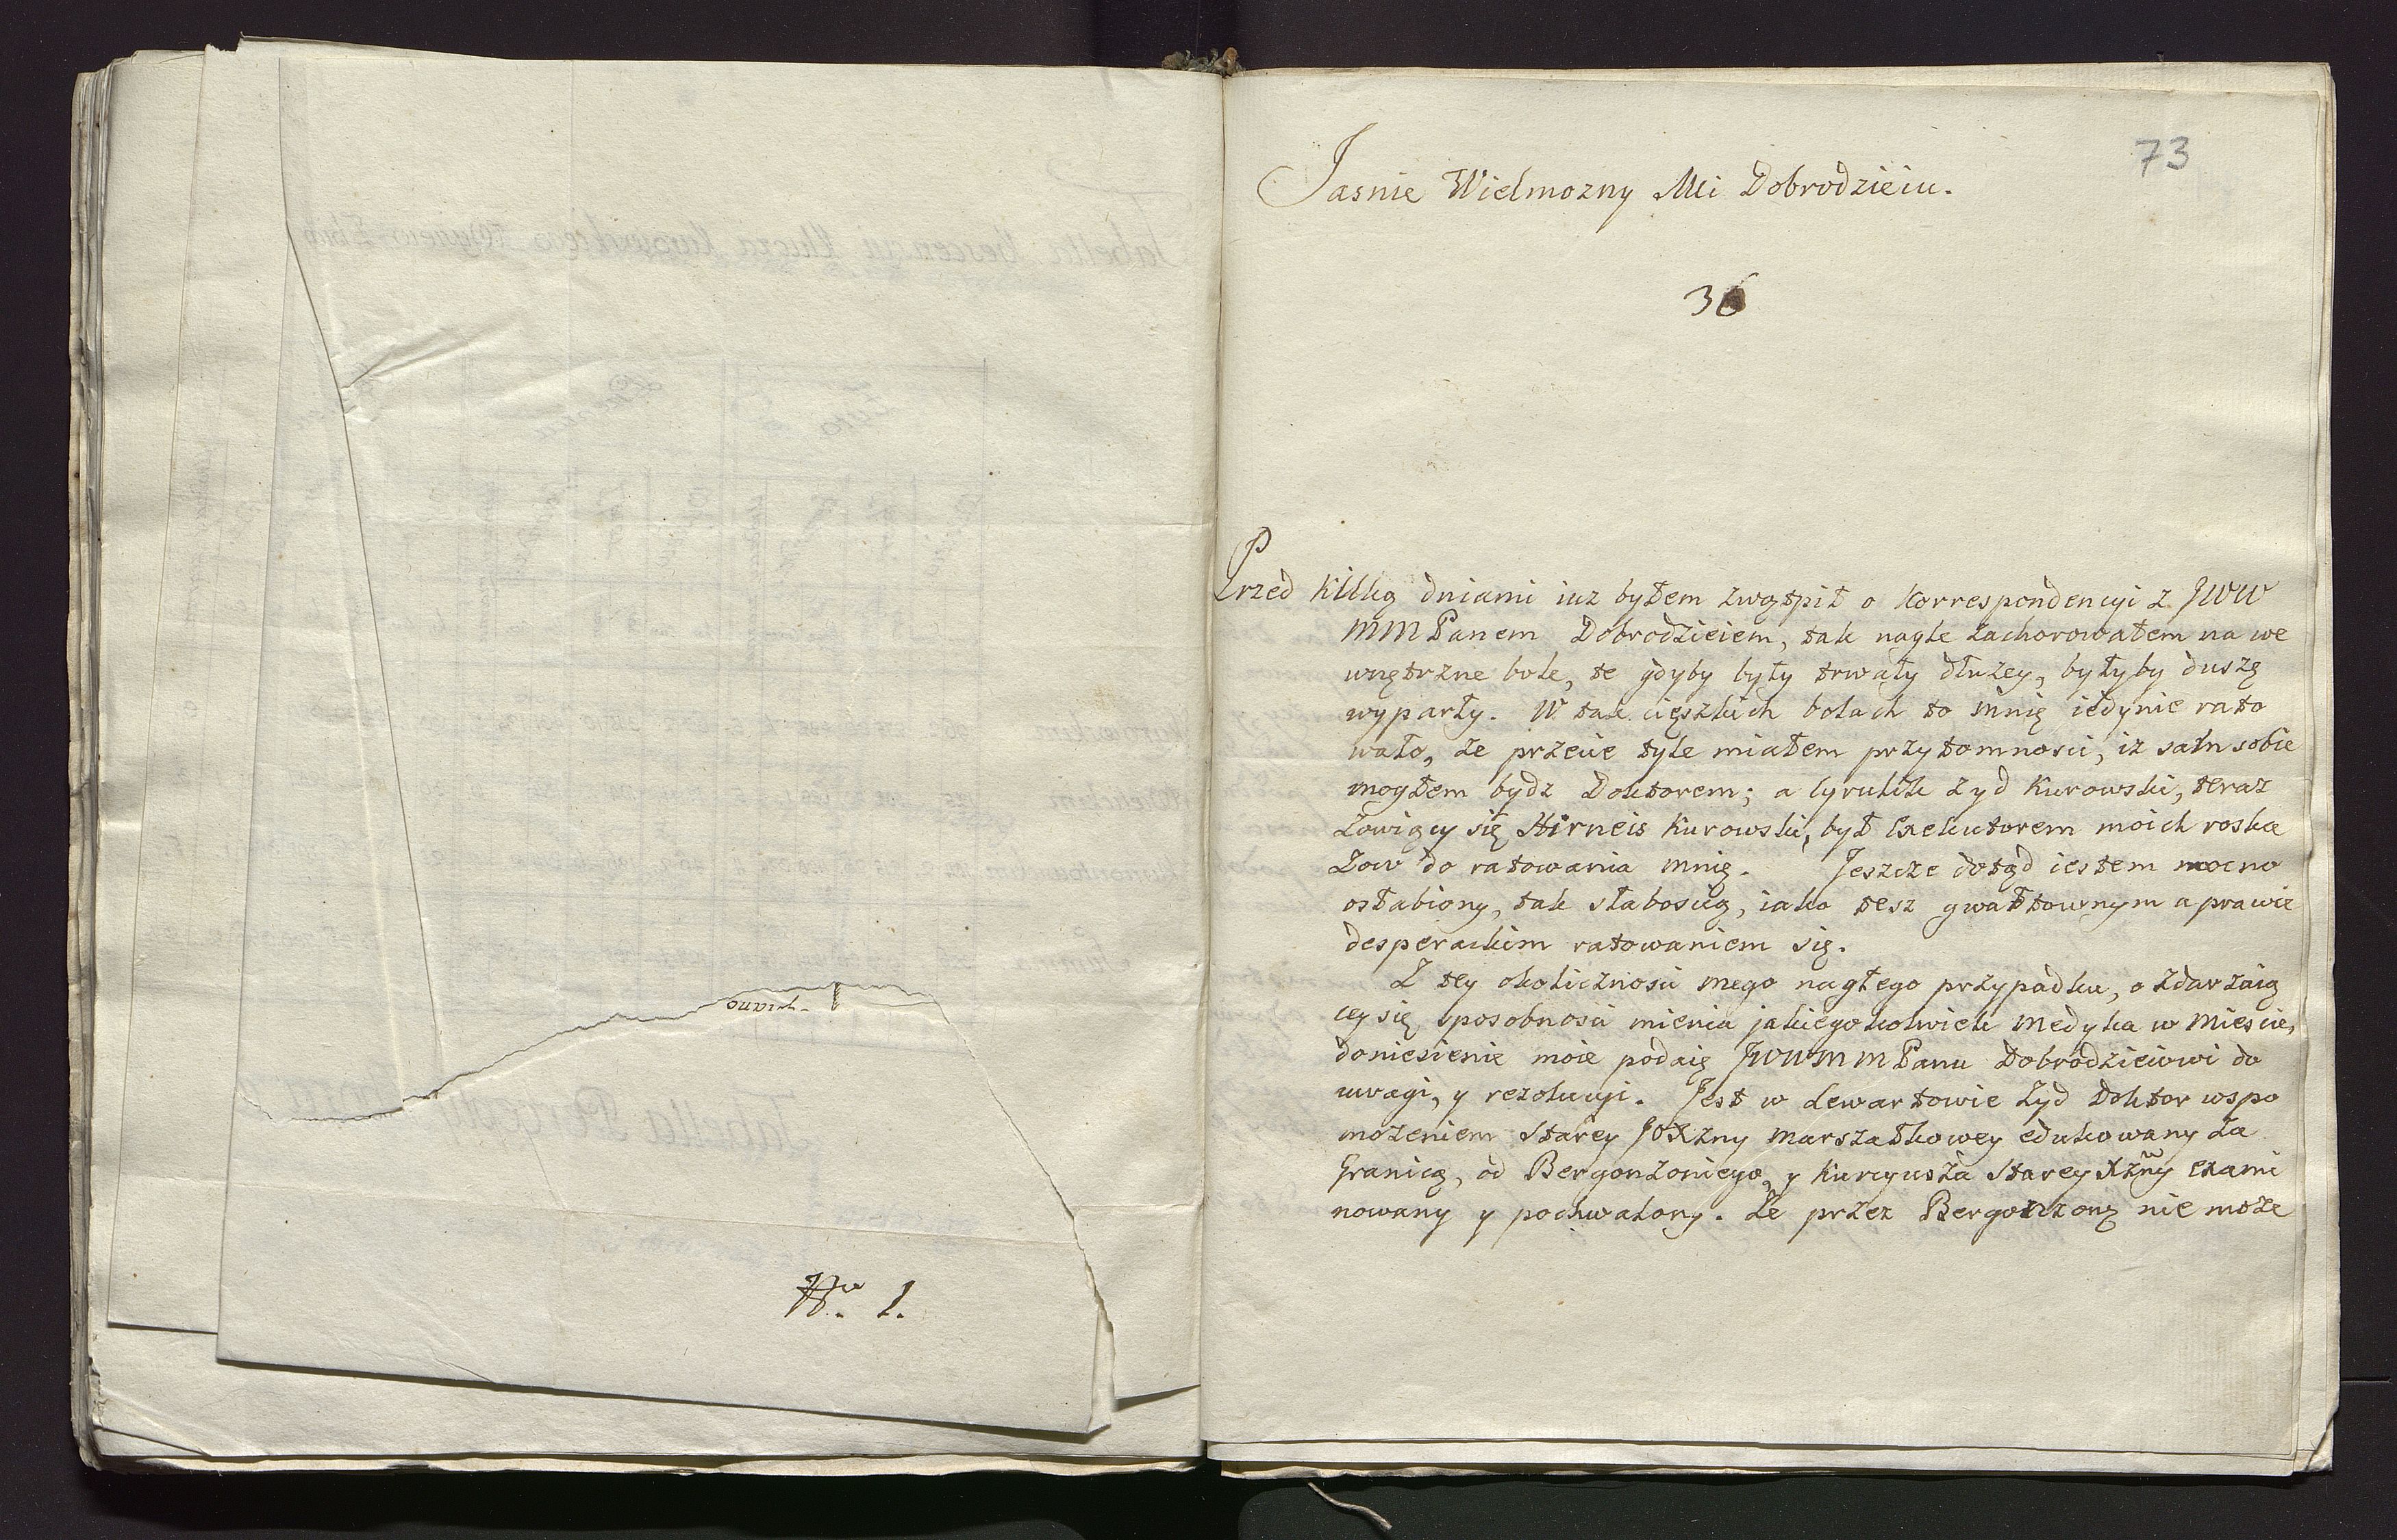 N<sup>ro</sup> 1.
73
Jasnie Wielmozny Mci Dobrodzieiu.
36
Przed kilką dniami iuz byłem zwątpił o korrespondencyi z JWW
MM Panem Dobrodzieiem, tak nagle zachorowałem na we
wnętrzne bole, te gdyby były trwały dłuzey, byłyby duszę
wyparły. W tak cięszkich bolach to mnię iedynie rato
wało, ze przecie tyle miałem przytomnosci, iz sam sobie
mogłem bydz Doktorem; a Cyrulik Zyd Kurowski, teraz
zowiący się Hirneis Kurowski, był Exekutorem moich roska
zow do ratowania mnię. Jeszcze dotąd iestem mocno
osłabiony, tak słaboscią, iako tesz gwałtownym a prawie
desperackim ratowaniem się.
Z tey okolicznosci mego nagłego przypadku, o zdarzaią
cey się sposobnosci mienia jakiegokolwiek medyka w miescie,
doniesienie moie podaię JWWMM Panu Dobrodzieiowi do
uwagi, y rezolucyi. Jest w Lewartowie Zyd Doktor wspo
mozeniem Starey JOXzny Marszałkowey edukowany za
Granicą, od Bergonzoniego, y Kurcyusza Starey Xzny exami
nowany y pochwalony. Ze przez Bergonzonę nie moze